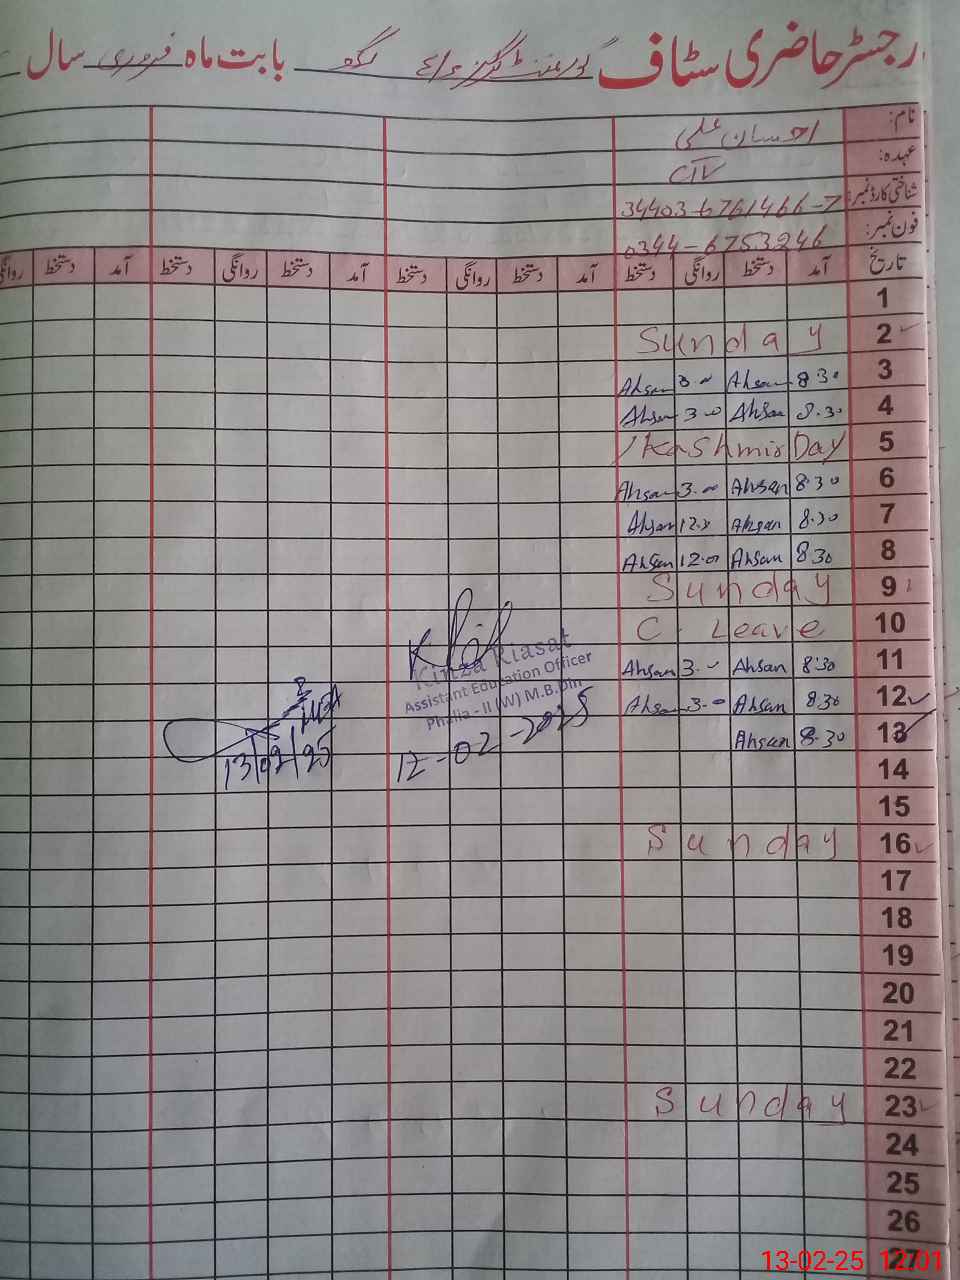 رجسٹر حاضری سٹاف گورنمنٹ گرلز بابت ماہ فروری سال
نام: احسان علی
عہدہ: CIV
شناختی کارڈ نمبر: 34403-6761466-7
فون نمبر: 0344-6753246
تاریخ آمد دستخط روانگی دستخط آمد دستخط روانگی دستخط آمد دستخط روانگی دستخط آمد دستخط روانگی
1
2 Sunday
3 8 30 Ahsan 3 00 Ahsan
4 8.30 Ahsan 3 00 Ahsan
5 Kashmir Day
6 8.30 Ahsan 3.00 Ahsan
7 8.30 Ahsan 12.0 Ahsan
8 8.30 Ahsan 12.0 Ahsan
9 Sunday
10 C. Leave
11 8:30 Ahsan 3.00 Ahsan
12 8.30 Ahsan 3.00 Ahsan
13 8.30 Ahsan
14
15
16 Sunday
17
18
19
20
21
22
23 Sunday
24
25
26
27
Kinza Riasat
Assistant Education Officer
Phalia - II (W) M.B.Din
12-02-2025
13/02/25
13-02-25 12:01